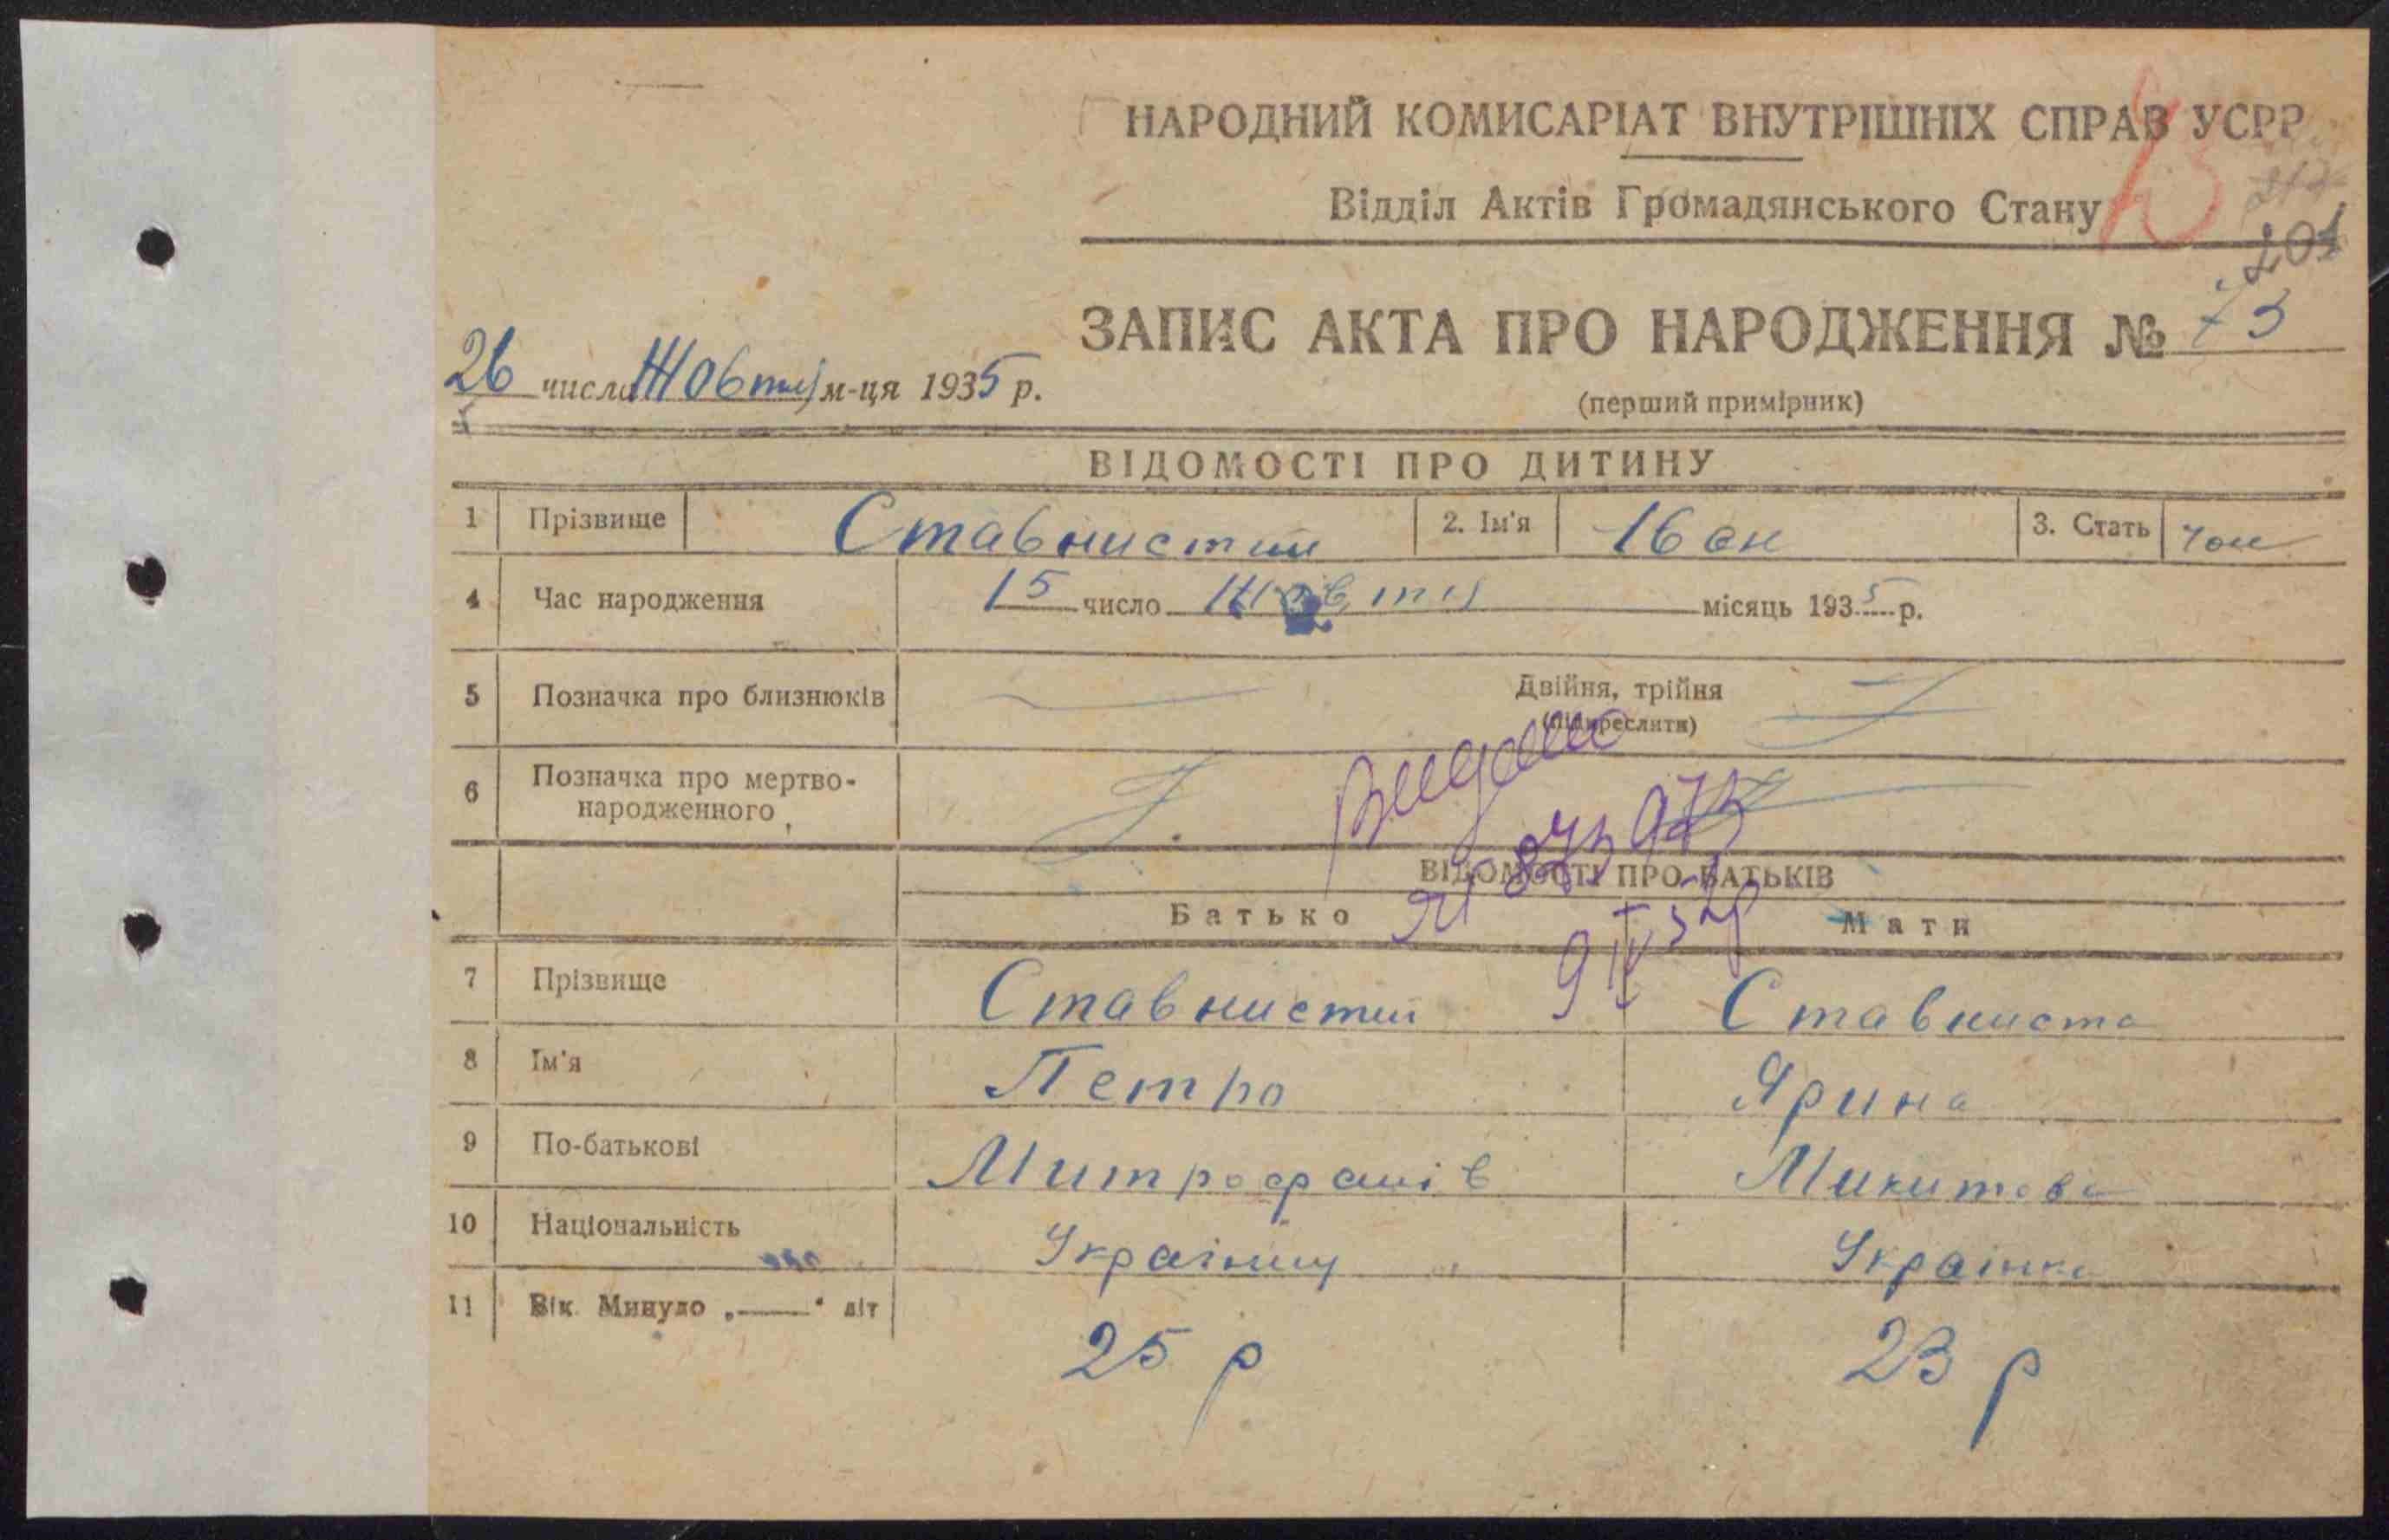 НАРОДНИЙ КОМИСАРІАТ ВНУТРІШНІХ СПРАВ УСРР
Відділ Актів Громадянського Стану
201
ЗАПИС АКТА ПРО НАРОДЖЕННЯ № 73
26 числа Жовтня м-ця 1935 р.
(перший примірник)
ВІДОМОСТІ ПРО ДИТИНУ
1 Прізвище Ставнистий 2. Ім'я Іван 3. Стать чол
4 Час народження 15 число Жовтня місяць 1935 р.
5 Позначка про близнюків Двійня, трійня
(підкреслити)
6 Позначка про мертво-
народженного
Видано
ВІДОМОСТІ ПРО БАТЬКІВ
Батько Мати
9 IV
7 Прізвище Ставнистий Ставниста
8 Ім'я Петро Ярина
9 По-батькові Митрофанів Микитова
10 Національність Українец Украінка
11 Вік. Минуло „——" літ 25 р 23 р